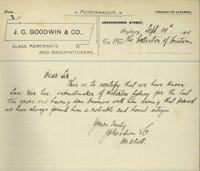 MEMORANDUM.
From
J. C. GOODWIN & CO.,
GLASS MERCHANTS
AND MANUFACTURERS
ABERCROMBIE STREET,
Sydney, Sept 14th 191
To The Collector of Customs
Dear Sir
This is to certify that we have known
War Lee cabinetmaker of Waterloo Sydney for the last
Ten years and having done business with him during that period
we have always found him a reliable and honest citizen
Yours truly
J Goodwin & Co